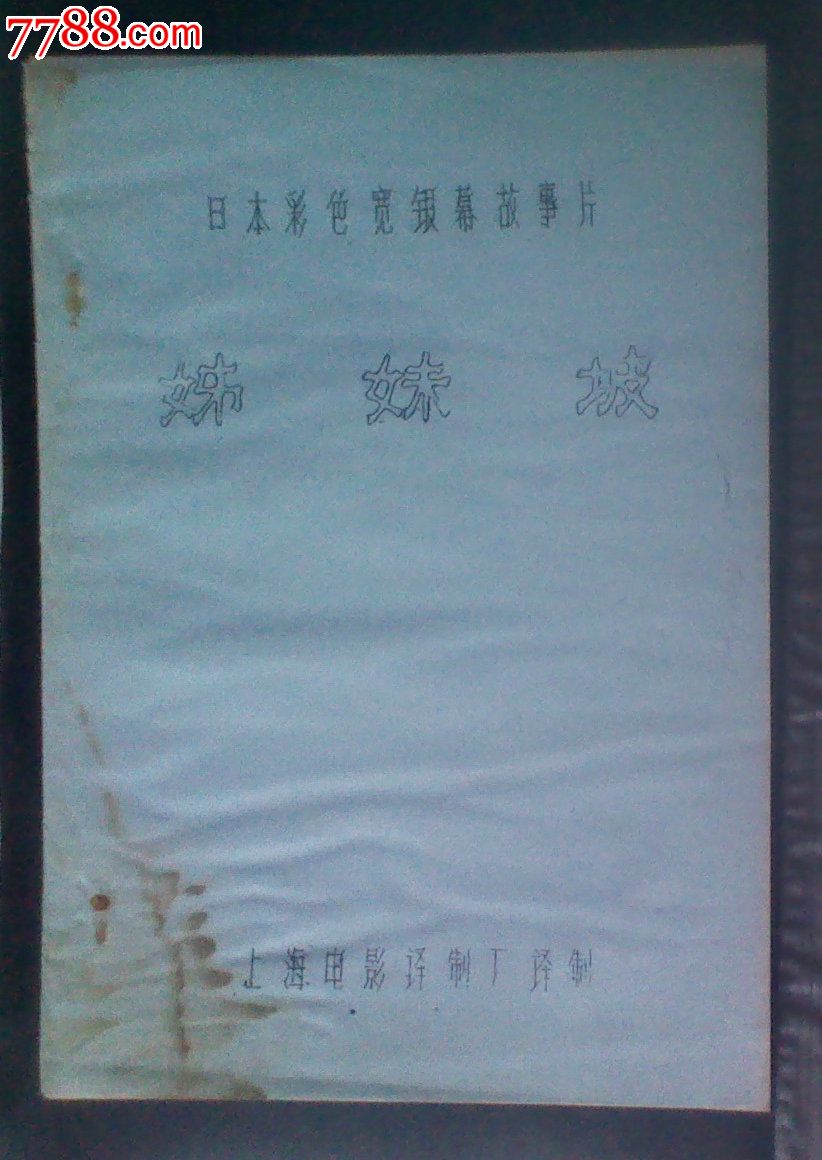 7788.com
日本彩色宽银幕故事片
姊妹坡
上海电影译制厂译制